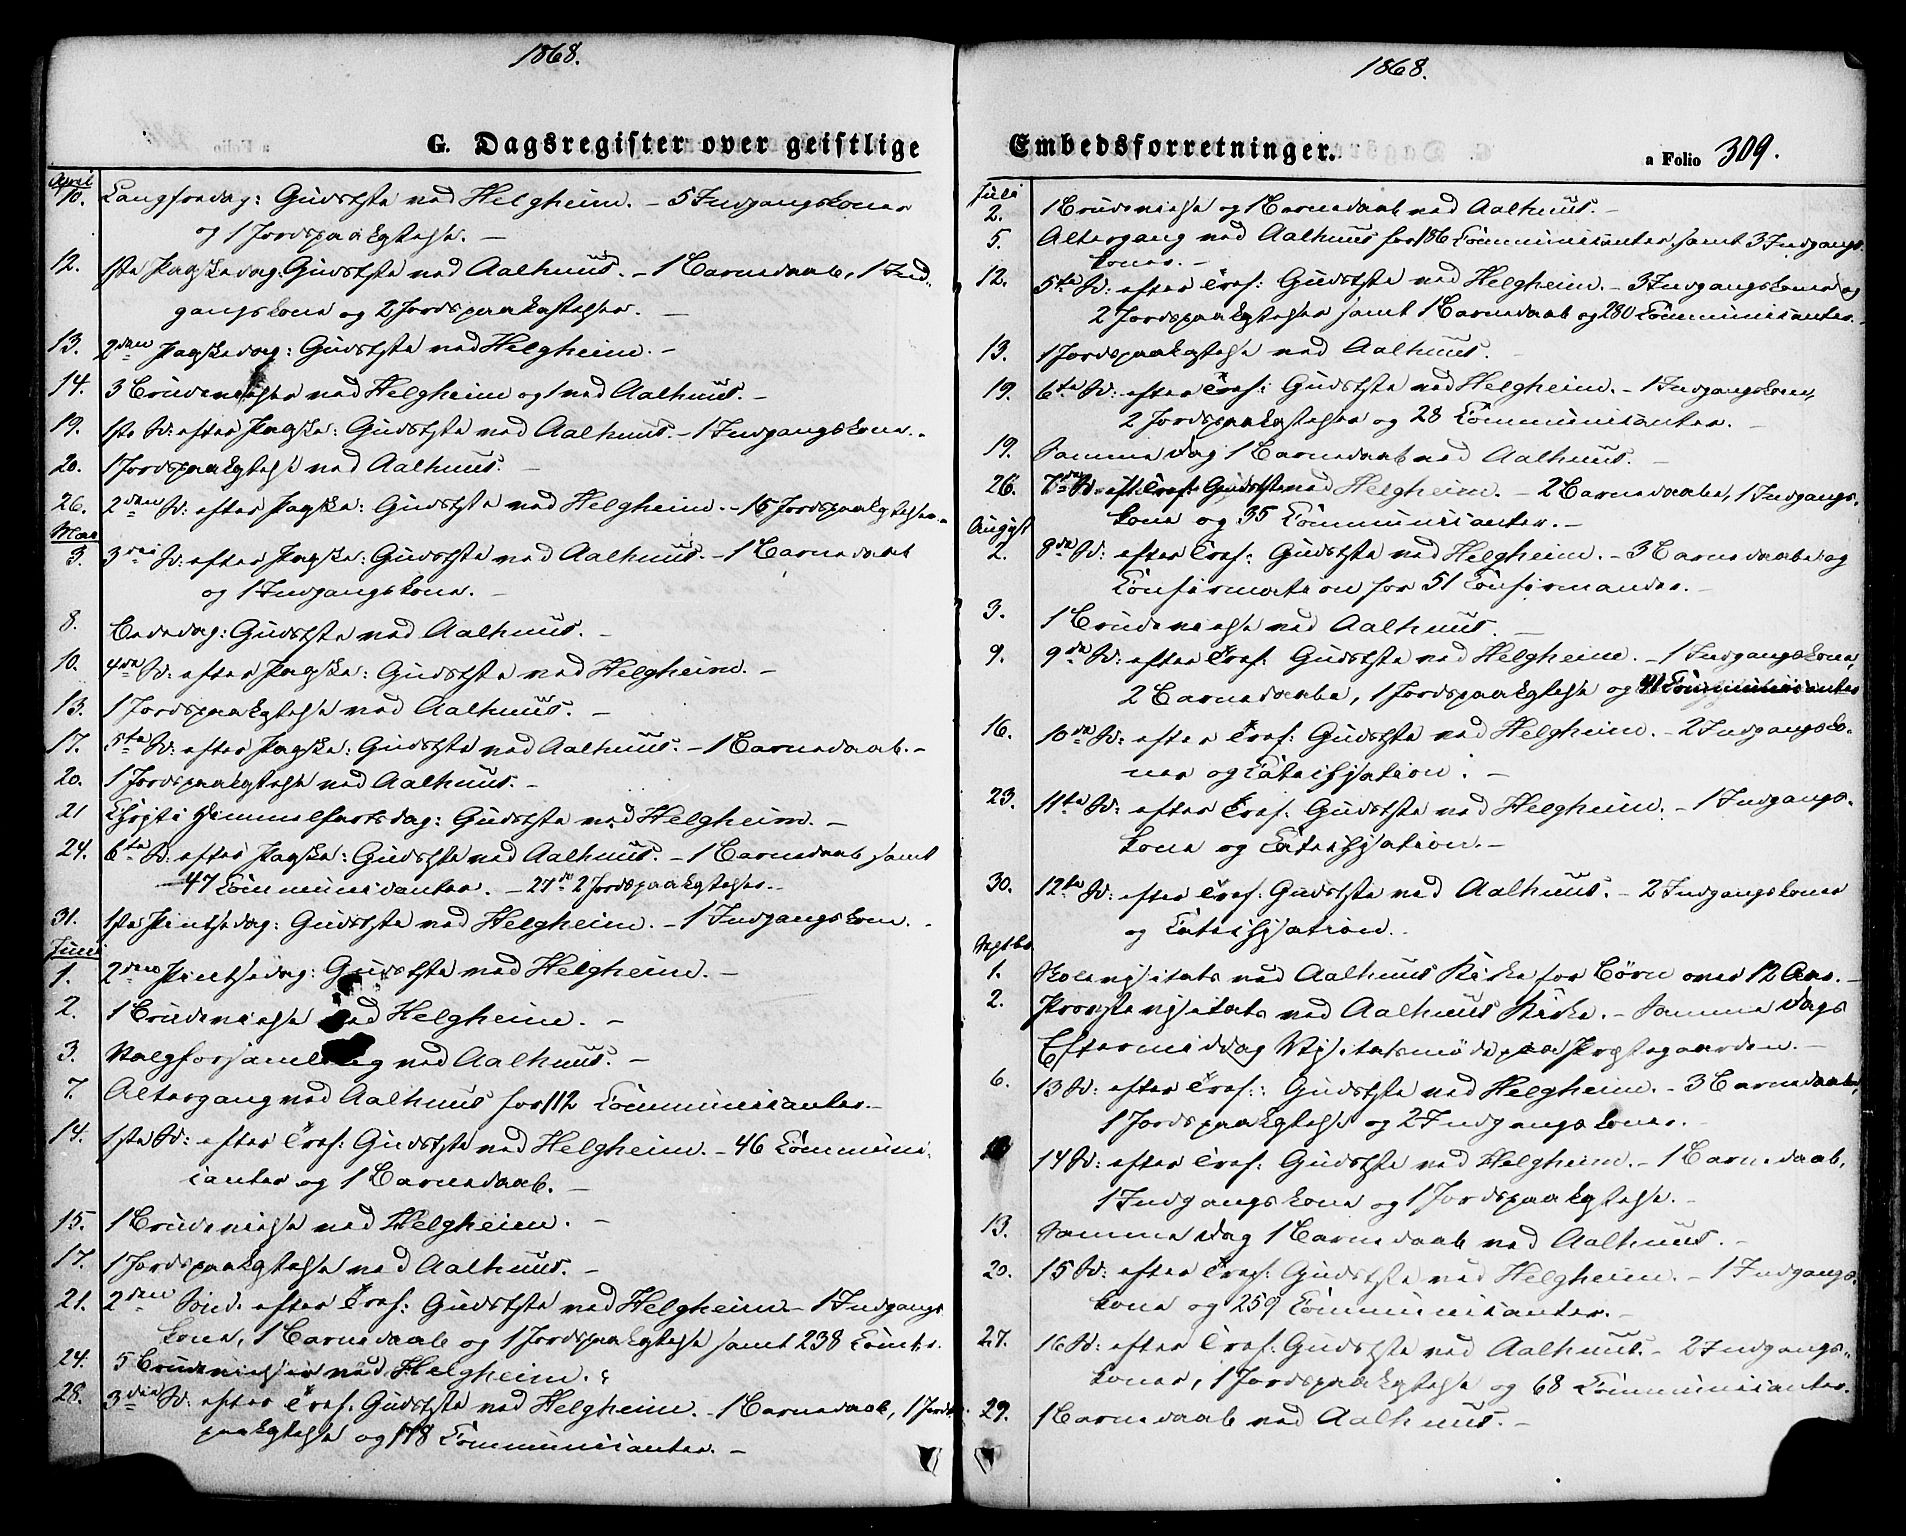 1868.
G. Dagsregister over geistlige
April
10. Langfredag: Gudstste ved Helgheim. – 5 Indgangskoner
og 1 Jordspaakastelse. –
12. 1ste Paaskedag: Gudstste ved Aalhuus. – 1 Barnedaab, 1 Ind-
gangskone og 2 Jordspaakastelser. –
13. 2den Paaskedag: Gudstste ved Helgheim. –
14. 3 Brudevielser ved Helgheim og 1 ved Aalhuus. –
19. 1ste S: efter Paaske: Gudstste ved Aalhuus. – 1 Indgangskone. –
20. 1 Jordspaakastelse ved Aalhuus. –
26. 2den S: efter Paaske: Gudstste ved Helgheim. – 15 Jordspaakastelser. –
Mai
3. 3die S: efter Paaske: Gudstste ved Aalhuus. – 1 Barnedaab
og 1 Indgangskone. –
8. Bededag: Gudstste ved Aalhuus. –
10. 4de S: efter Paaske: Gudstste ved Helgheim. –
13. 1 Jordspaakastelse ved Aalhuus. –
17. 5te S: efter Paaske: Gudstste ved Aalhuus. – 1 Barnedaab. –
20. 1 Jordspaakastelse ved Aalhuus. –
21 Christi Himmelfartsdag: Gudstste ved Helgheim. –
24. 6te S: efter Paaske: Gudstste ved Aalhuus. – 1 Barnedaab samt
47 Communicanter. – 27de 2 Jordspaakastelser. –
31. 1ste Pintsedag: Gudstste ved Helgheim. – 1 Indgangskone. –
Juni
1. 2den Pintsedag: Gudstste ved Helgheim. –
2. 1 Brudevielse ved Helgheim. –
3. Valgforsamling ved Aalhuus. –
7. Altergang ved Aalhuus for 112 Communicanter. –
14. 1ste S: efter Tref: Gudstste ved Helgheim. – 46 Communi-
canter og 1 Barnedaab. –
15. 1 Brudevielse ved Helgheim. –
17. 1 Jordspaakastelse ved Aalhuus. –
21. 2den Sønd. efter Tref: Gudstste ved Helgheim – 1 Indgangs
kone, 1 Barnedaab og 1 Jordspaakastelse samt 238 Comt.r.
24. 5 Brudevielser ved Helgheim. –
28. 3die S: efter Tref. Gudstste ved Helgheim. – 1 Barnedaab, 1 Jords-
paakastelse og 178 Communicanter. –
1868.
Embedsforretninger.
a Folio 309.
Juli
2. 1 Brudevielse og 1 Barnedaab ved Aalhuus. –
5. Altergang ved Aalhuus for 186 Communicanter, samt 3 Indgangs-
koner. –
12. 5te S: efter Tref: Gudstste ved Helgheim. – 3 Indgangskoner og
2 Jordspaakastelser samt 1 Barnedaab og 280 Communicanter. –
13. 1 Jordspaakastelse ved Aalhuus. –
19. 6te S: efter Tref: Gudstste ved Helgheim. – 1 Indgangskone,
2 Jordspaakastelser og 28 Communicanter. –
19. Samme Dag 1 Barnedaab ved Aalhuus. –
26. 7de S. eft. Tref: Gudstste ved Helgheim. – 2 Barnedaabe, 1 Indgangs-
kone og 35 Communicanter. –
August
2. 8de S: efter Tref: Gudstste ved Helgheim. – 3 Barnedaabe og
Confirmation for 51 Confirmander. –
3. 1 Brudevielse ved Aalhuus. –
9. 9de S: efter Tref: Gudstste ved Helgheim. – 1 Indgangskone,
2 Barnedaabe, 1 Jordspaakastelse og Communicanter
16. 10de S: efter Tref: Gudstste ved Helgheim. – 2 Indgangsko-
ner og Catechisation. –
23. 11te S: efter Tref: Gudstste ved Helgheim. – 1 Indgangs-
kone og Catechisation. –
30. 12te S: efter Tref: Gudstste ved Aalhuus. – 2 Indgangskoner
og Catechisation. –
Septbr.
1. Skolevisitats ved Aalhuus Kirke for Børn over 12 Aar. –
2. Provstevisitats ved Aalhuus Kirke. – Samme Dags
Eftermiddag Visitatsmøde paa Præstegaarden. –
6. 13 S: efter Tref: Gudstste ved Helgheim. – 3 Barnedaabe,
1 Jordspaakastelse og 2 Indgangskoner. –
14 S: efter Tref: Gudstste ved Helgheim. – 1 Barnedaab,
1 Indgangskone og 1 Jordspaakastelse. –
13. Samme Dag 1 Barnedaab ved Aalhuus. –
20. 15 S: efter Tref: Gudstste ved Helgheim. – 1 Indgangs-
kone og 259 Communicanter. –
27. 16 S: efter Tref: Gudstste ved Aalhuus. – 2 Indgangs-
koner, 1 Jordspaakastelse og 68 Communicanter.
29. 1 Barnedaab ved Aalhuus. –